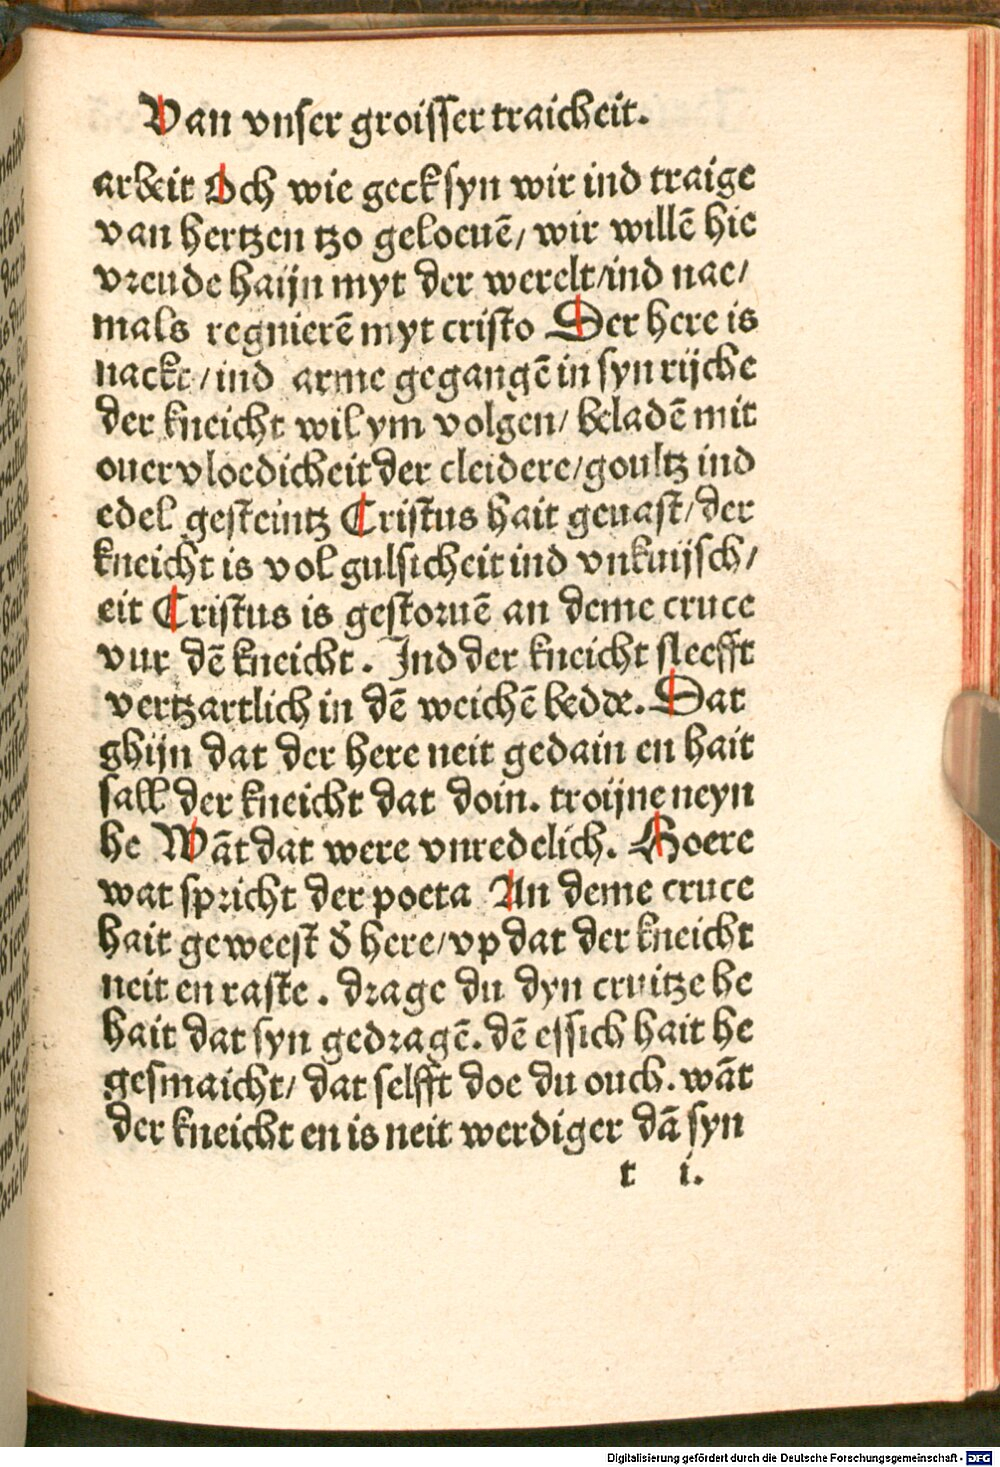 Van vnser groisser traicheit.
arbeit Och wie geck syn wir ind traige
van hertzen tzo geloeuē/ wir willē hie
vreude haijn myt der werelt/ind nae/
mals regnierē myt cristo Der here is
nackt/ind arme gegangē in syn rijche
der kneicht wil ym volgen/ beladē mit
ouervloedicheit der cleidere/goultz ind
edel gesteintz Cristus hait geuast/der
kneicht is vol gulsicheit ind vnkuijsch/
eit Cristus is gestoruē an deme cruce
vur dē kneicht. Ind der kneicht sleefft
vertzartlich in dē weichē bedde. Dat
ghijn dat der here neit gedain en hait
sall der kneicht dat doin. troijne neyn
he Wāt dat were vnredelich. Hoere
wat spricht der poeta An deme cruce
hait geweest d̄ here/vp dat der kneicht
neit en raste. drage du dyn cruitze he
hait dat syn gedragē. dē essich hait he
gesmaicht/ dat selfft doe du ouch. wāt
der kneicht en is neit werdiger dā syn
t i.
Digitalisierung gefördert durch die Deutsche Forschungsgemeinschaft - DFG